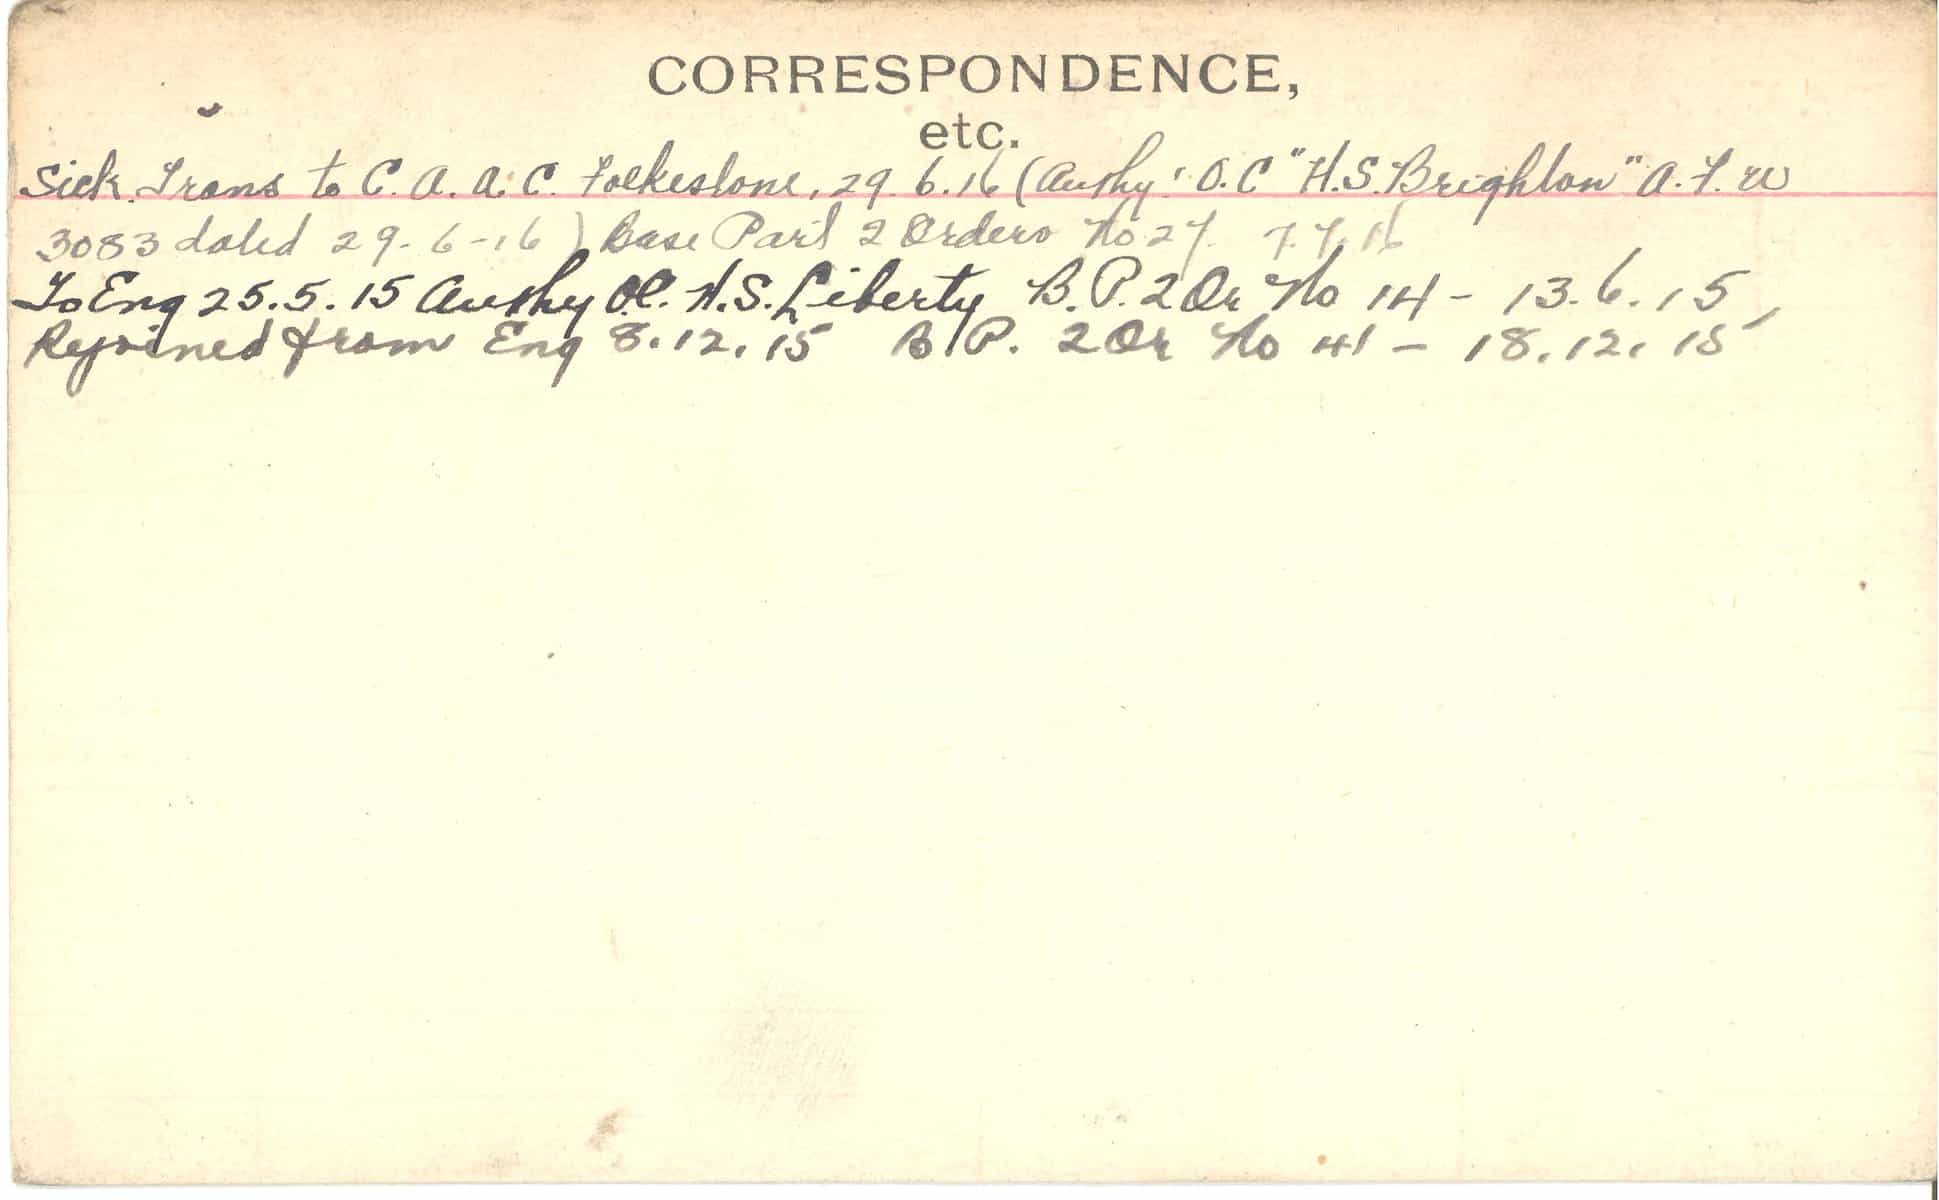 CORRESPONDENCE,
etc.
Sick. Trans to C. A. A. C. Folkestone, 29. 6. 16 (Authy: O.C "H.S. Brighton" A. F. W
3083 dated 29-6-16) Base Part 2 Orders No 27. 7.7.16
To Eng 25.5.15 Authy O.C. H.S. Liberty B.P. 2 Or No 14 - 13.6.15,
Rejoined from Eng 8.12.15 B.P. 2 Or No 41 - 18.12.15